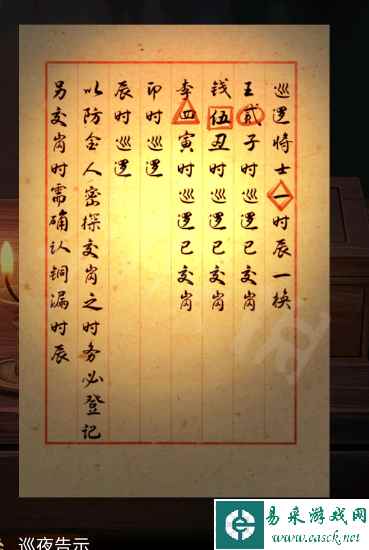 巡逻将士一时辰一换
王贰子时巡逻已交岗
钱伍丑时巡逻已交岗
李四寅时巡逻已交岗
卯时巡逻
辰时巡逻
以防金人密探交岗之时务必登记
另交岗时需确认铜漏时辰
巡夜告示
易采游戏网
www.easck.net